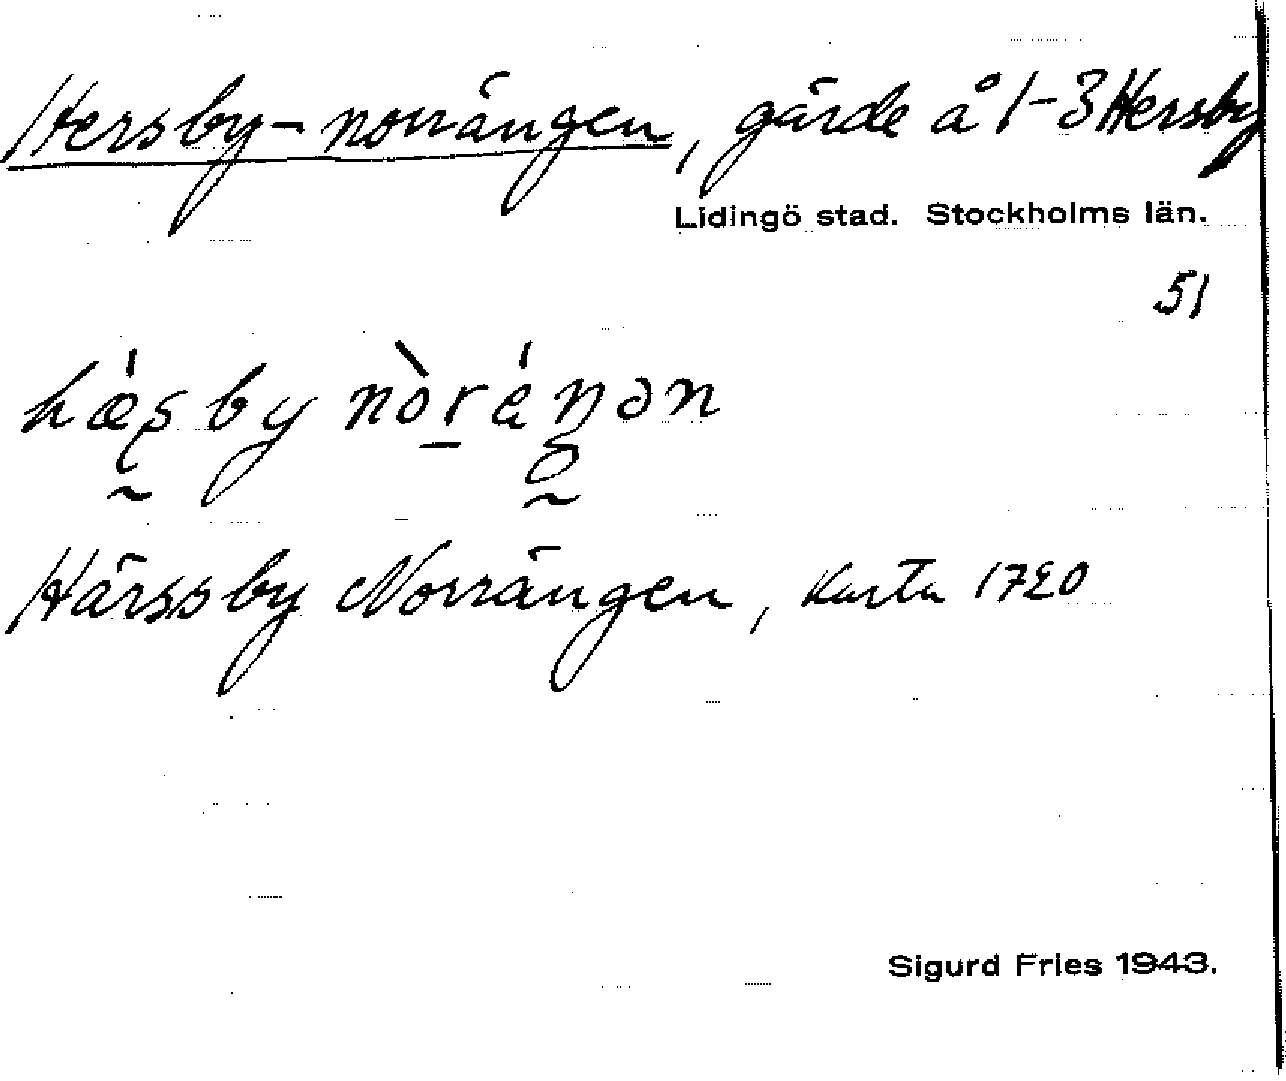 Hersby-norrängen, gärde å 1-3 Hersby
Lidingö stad. Stockholms län.
51
hæ̀ʂby nòráŋən
Härssby Norrängen, Karta 1720
Sigurd Fries 1943.